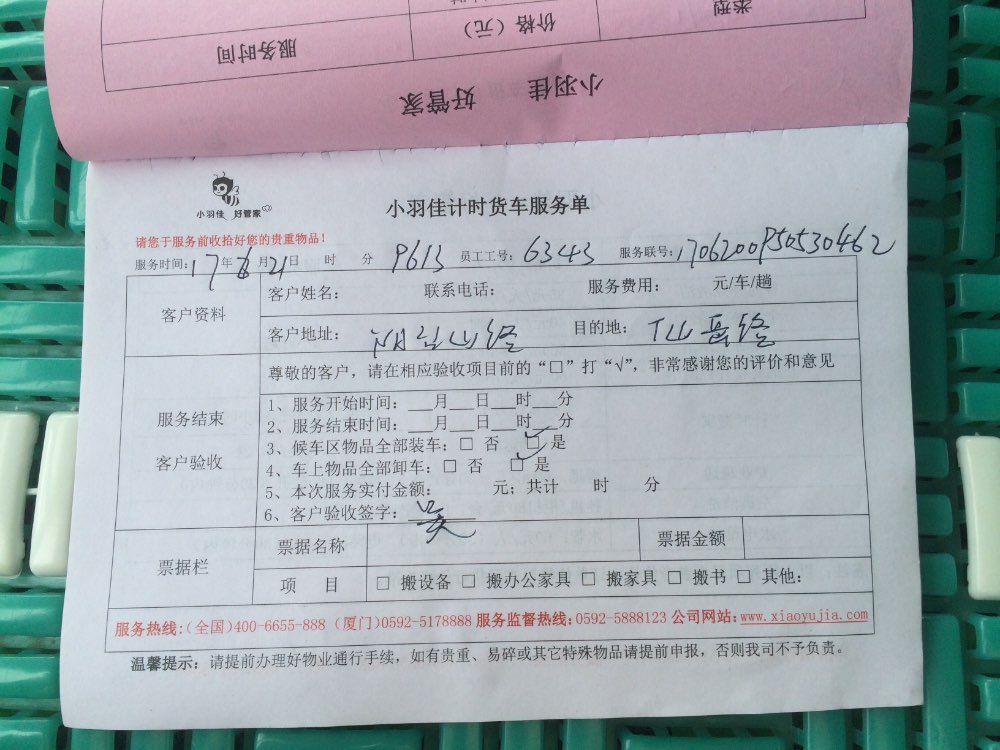 类型
价格（元）
服务时间
小羽佳 好管家
小羽佳 好管家
小羽佳计时货车服务单
请您于服务前收拾好您的贵重物品！
服务时间：17年6月21日 时 分 9613 员工工号：6343 服务联号：
客户资料
客户姓名： 联系电话： 服务费用： 元/车/趟
客户地址： 目的地：
尊敬的客户，请在相应验收项目前的“□”打“√”，非常感谢您的评价和意见
服务结束
客户验收
1、服务开始时间：___月___日___时___分
2、服务结束时间：___月___日___时___分
3、候车区物品全部装车：□ 否 ☑ 是
4、车上物品全部卸车：□ 否 ☑ 是
5、本次服务实付金额： 元；共计 时 分
6、客户验收签字：吴
票据栏
票据名称 票据金额
项 目 □ 搬设备 □ 搬办公家具 □ 搬家具 □ 搬书 □ 其他：
服务热线：（全国）400-6655-888（厦门）0592-5178888 服务监督热线：0592-5888123 公司网站：www.xiaoyujia.com
温馨提示：请提前办理好物业通行手续，如有贵重、易碎或其它特殊物品请提前申报，否则我司不予负责。